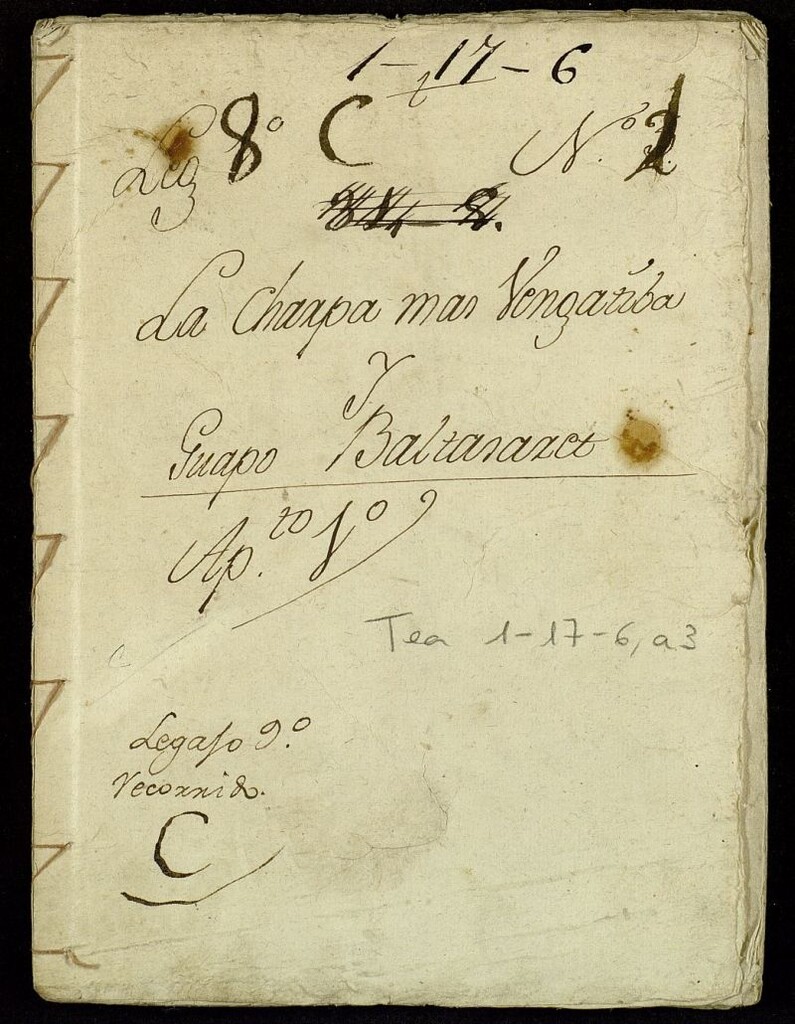 1-17-6
Leg 8º C N.º 1
La Charpa mas Vengatiba
Y
Guapo Baltasaret
Ap.to 1º
Tea 1-17-6, a3
Legajo 9.º
recorrido.
C